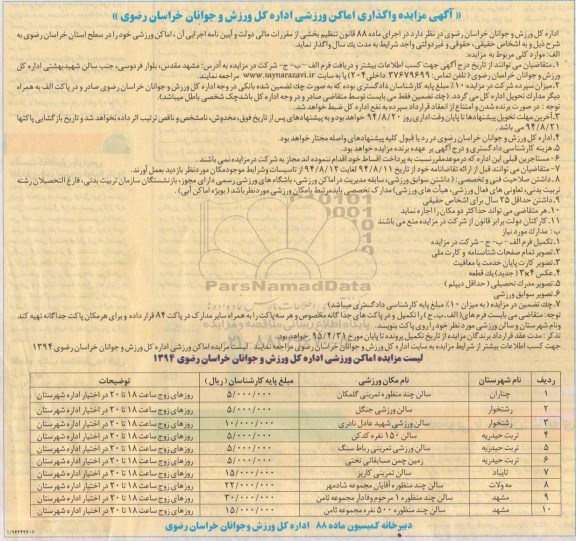 « آگهی مزایده واگذاری اماکن ورزشی اداره کل ورزش و جوانان خراسان رضوی »
اداره کل ورزش و جوانان خراسان رضوی در نظر دارد در اجرای ماده ۸۸ قانون تنظیم بخشی از مقررات مالی دولت و آیین نامه اجرایی آن، اماکن ورزشی خود را در سطح استان خراسان رضوی به
شرح ذیل و به اشخاص حقیقی، حقوقی و غیردولتی واجد شرایط به مدت یک سال واگذار نماید.
الف: موارد کلی مربوط به مزایده:
۱.متقاضیان می توانند از تاریخ درج آگهی جهت کسب اطلاعات بیشتر و دریافت فرم الف – ب- ج – شرکت در مزایده به آدرس: مشهد مقدس، بلوار فردوسی، جنب سالن شهیدبهشتی اداره کل
ورزش و جوانان خراسان رضوی ( تلفن تماس: ۳۷۶۷۹۶۹۹ داخلی ۲۰۴) یا به سایت www.saynarazavi.ir مراجعه نمایند.
۲.میزان سپرده شرکت در مزایده ۱۰٪ مبلغ پایه کارشناسان دادگستری بوده که به صورت چک تضمین شده بانکی در وجه اداره کل ورزش و جوانان خراسان رضوی صادر و در پاکت الف به همراه
دیگر مدارک تحویل اداره کل می گردد. (چک تضمین فقط می بایست توسط متقاضی صادر و در وجه اداره کل باشدچک شخصی باطل میباشد).
توجه: در صورت برنده شدن و امتناع از انعقاد قرارداد سپرده به نفع اداره کل ضبط خواهد شد.
۳.آخرین مهلت تحویل پیشنهادها تا پایان وقت اداری روز ۹۴/۸/۲۰ خواهد بود و به پیشنهادهای پس از تاریخ فوق، مخدوش، نامشخص و ناقص ترتیب اثر داده نخواهد شد و تاریخ بازگشایی پاکتها
۹۴/۸/۲۱ می باشد.
۴.اداره کل ورزش و جوانان خراسان رضوی در رد یا قبول کلیه پیشنهادهای واصله مختار خواهد بود.
۵. هزینه کارشناسی دادگستری و درج آگهی بر عهده برنده مزایده خواهد بود.
۶- مستاجرین قبلی این اداره که در موعدمقرر نسبت به پرداخت اقساط خود اقدام ننموده اند مجاز به شرکت در مزایده نمی باشند.
۷- متقاضیان می توانند قبل از ارائه تقاضانامه خود از تاریخ ۹۴/۸/۱۱ لغایت ۹۴/۸/۱۲ از تاسیسات وشرایط موجودمکان موردنظر بازدید بعمل آورند.
۸. داشتن صلاحیت فنی و تخصصی : ( داشتن سوابق ورزشی، سابقه مدیریت در اماکن ورزشی، باشگاه های ورزشی رسمی دارای مجوز، بازنشستگان سازمان تربیت بدنی، فارغ التحصیلان رشته
تربیت بدنی، تعاونی های فعال ورزشی، هیأت های ورزشی) مدارک تخصصی بایدمرتبط بامکان ورزشی موردنظر باشد ( بویژه اماکن آبی ) .
۹. داشتن حداقل ۲۵ سال برای اشخاص حقیقی
۱۰. هر متقاضی می تواند حداکثر دو مکان را اجاره نماید
۱۱. کارکنان دولت برابر قانون از شرکت در مزایده منع می باشند
ب: مدارک مورد نیاز
۱.تکمیل فرم الف - ب - ج - شرکت در مزایده
۲.تصویر تمام صفحات شناسنامه و کارت ملی
۳.تصویر کارت پایان خدمت یا معافیت
۴.عکس ۴×۳ ( جدید) یک قطعه
۵.تصویر مدرک تحصیلی ( حداقل دیپلم )
۶.تصویر سوابق ورزشی
۷.چک تضمین در مزایده ( به میزان ۱۰٪ مبلغ پایه کارشناسی دادگستری میباشد)
توجه: متقاضی می بایست فرم های( الف، ب، ج) را تکمیل و در پاکت های جداگانه مخصوص و هر سه پاکت را به همراه سایر مدارک در پاکت A۴ قرار داده و برای هرمکان پاکت جداگانه تهیه کند
ونام شهرستان و سالن ورزشی مورد نظر خود را روی پاکت بنویسد.
تذکر : مدت عقد قرارداد برندگان مزایده از تاریخ تکمیل پرونده تا پایان مورخ ۹۵/۴/۳۱ خواهد بود.
جهت کسب اطلاعات بیشتر از شرایط مزایده به سایت اداره کل ورزش و جوانان خراسان رضوی مراجعه نمایید. لیست مزایده اماکن ورزشی اداره کل ورزش و جوانان خراسان رضوی ۱۳۹۴
لیست مزایده اماکن ورزشی اداره کل ورزش و جوانان خراسان رضوی ۱۳۹۴
ردیف نام شهرستان نام مکان ورزشی مبلغ پایه کارشناسان ( ریال ) توضیحات
۱ چناران سالن چند منظوره تمرینی گلمکان ۵/۰۰۰/۰۰۰ روزهای زوج ساعت ۱۸ تا ۲۰ در اختیار اداره شهرستان
۲ رشتخوار سالن ورزشی جنگل ۵/۰۰۰/۰۰۰ روزهای زوج ساعت ۱۸ تا ۲۰ در اختیار اداره شهرستان
۳ رشتخوار سالن ورزشی شهید عادل نادری ۱۰/۰۰۰/۰۰۰ روزهای زوج ساعت ۱۸ تا ۲۰ در اختیار اداره شهرستان
۴ تربت حیدریه سالن ۱۵۰ نفره کدکن ۵/۰۰۰/۰۰۰ روزهای زوج ساعت ۱۸ تا ۲۰ در اختیار اداره شهرستان
۵ تربت حیدریه سالن ورزشی تمرینی رباط سنگ ۵/۰۰۰/۰۰۰ روزهای زوج ساعت ۱۸ تا ۲۰ در اختیار اداره شهرستان
۶ تربت حیدریه زمین چمن مسابقاتی تختی ۵/۰۰۰/۰۰۰ روزهای زوج ساعت ۱۸ تا ۲۰ در اختیار اداره شهرستان
۷ تایباد سالن تمرینی کاریز ۱۵/۰۰۰/۰۰۰ روزهای زوج ساعت ۱۸ تا ۲۰ در اختیار اداره شهرستان
۸ مه ولات سالن چند منظوره آقایان مجموعه شادمهر ۲۲/۰۰۰/۰۰۰ روزهای زوج ساعت ۱۸ تا ۲۰ در اختیار اداره شهرستان
۹ مشهد سالن چند منظوره ۱ مرحوم وفادار مجموعه ثامن ۳۰/۰۰۰/۰۰۰ روزهای زوج ساعت ۱۸ تا ۲۰ در اختیار اداره شهرستان
۱۰ مشهد سالن چند منظوره ۵۰۰ نفره مجموعه ثامن ۱۵/۰۰۰/۰۰۰ روزهای زوج ساعت ۱۸ تا ۲۰ در اختیار اداره شهرستان
دبیرخانه کمیسیون ماده ۸۸ اداره کل ورزش وجوانان خراسان رضوی
ParsNamadData